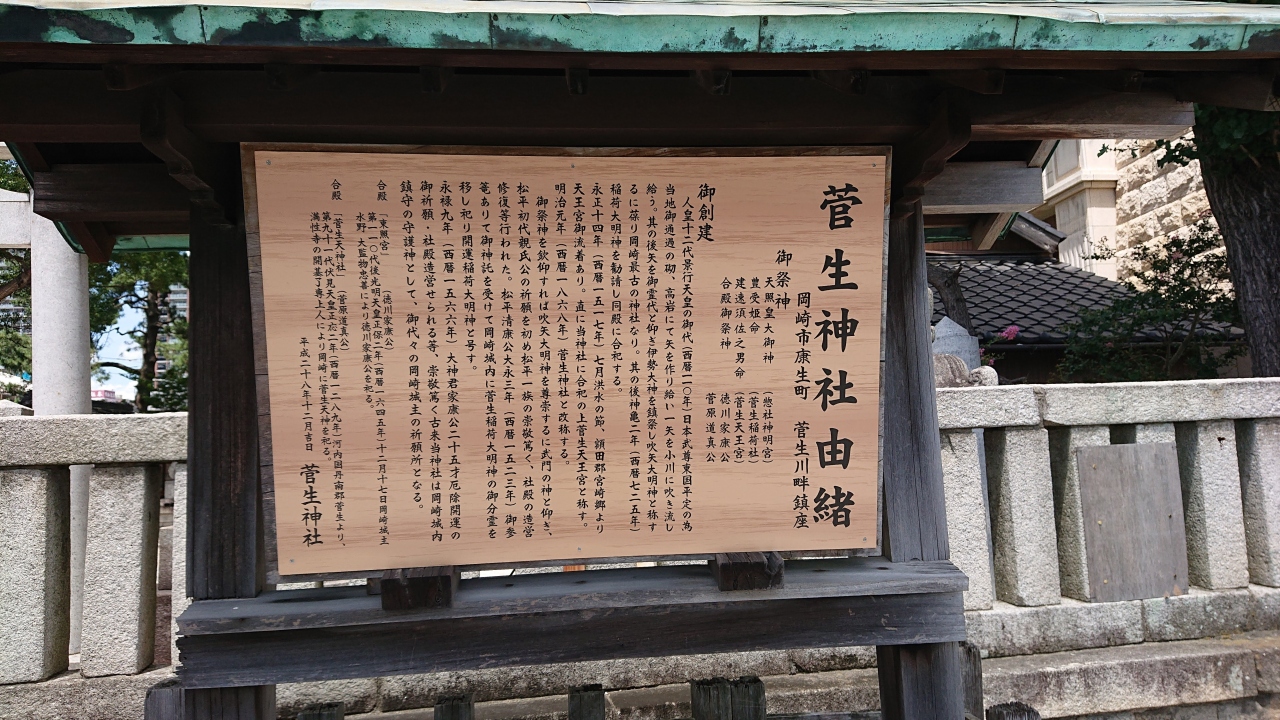 菅生神社由緒
岡崎市康生町　菅生川畔鎮座
御祭神
天照皇大御神　（惣社神明宮）
豊受姫命　（菅生稲荷社）
建速須佐之男命　（菅生天王宮）
合殿御祭神　徳川家康公
菅原道真公
御創建
人皇十二代景行天皇の御代（西暦一一〇年）日本武尊東国平定の為
当地御通過の砌、高岩にて矢を作り給い一矢を小川に吹き流し
給う。其の後矢を御霊代と仰ぎ伊勢大神を鎮祭し吹矢大明神と称す
るに葆り岡崎最古の神社なり。其の後神亀二年（西暦七二五年）
稲荷大明神を勧請し同殿に合祀する。
永正十四年（西暦一五一七年）七月洪水の節、額田郡宮崎郷より
天王宮御流着あり。直に当神社に合祀の上菅生天王宮と称す。
明治元年（西暦一八六八年）菅生神社と改称する。
御祭神を欽仰すれ吹矢大明神を尊崇するに武門の神と仰ぎ、
松平初代親氏公の祈願を初め松平一族の崇敬篤く、社殿の造営
修復等行われた。松平清康公大永三年（西暦一五二三年）御参
篭ありて御神託を受けて岡崎城内に菅生稲荷大明神の御分霊を
移し祀り開運稲荷大明神と号す。
永禄九年（西暦一五六六年）大神君家康公二十五才厄除開運の
御祈願・社殿造営せられる等、崇敬篤く古来当神社は岡崎城内
鎮守の守護神として、御代々の岡崎城主の祈願所となる。
合殿　「東照宮」（徳川家康公）
第一一〇代後光明天皇正保二年（西暦一六四五年）十二月十七日岡崎城主
水野　大監物忠善により徳川家康公を祀る。
合殿　「菅生天神社」（菅原道真公）
第九十一代伏見天皇正応二年（西暦一二八九年）河内国丹南郡菅生より、
満性寺の開基了専上人により岡崎に菅生天神を祀る。
平成二十八年十二月吉日　菅生神社